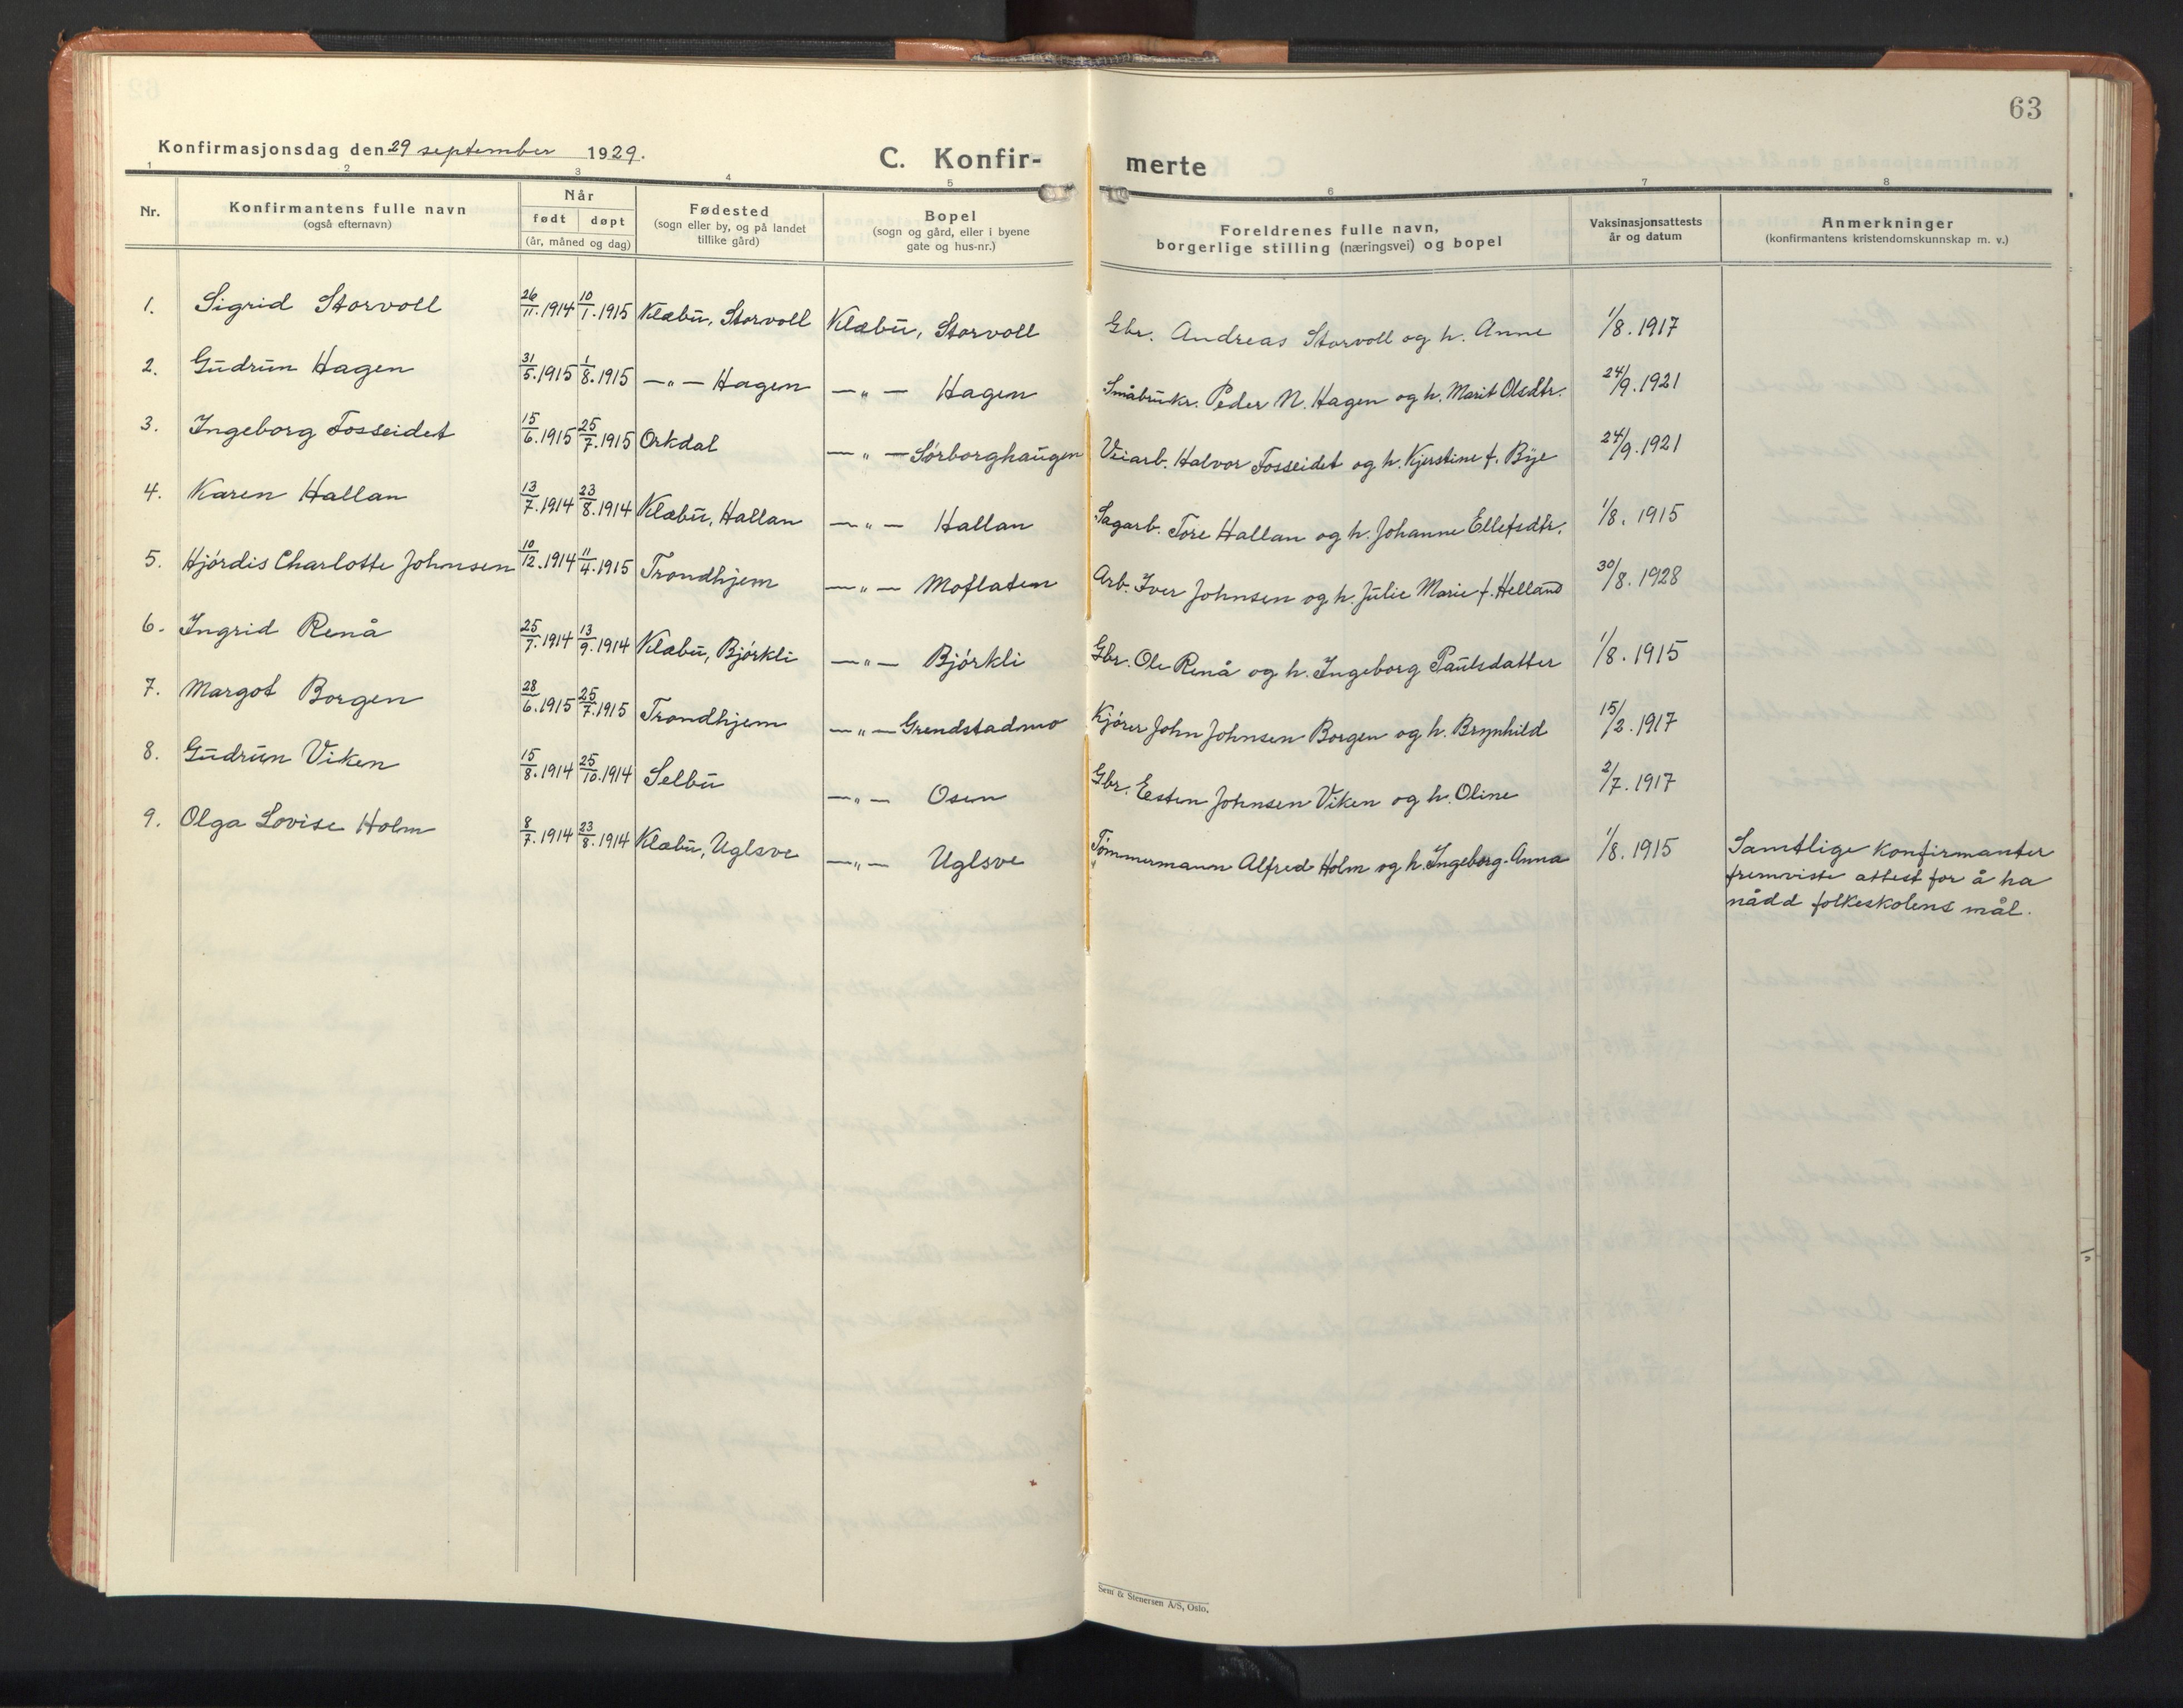 63
Konfirmasjonsdag den 29 september 1929.
C. Konfir-
merte
1 2 3 4 5 6 7 8
Nr. Konfirmantens fulle navn (også efternavn) Når født døpt (år, måned og dag) Fødested (sogn eller by, og på landet tillike gård) Bopel (sogn og gård, eller i byene gate og hus-nr.) Foreldrenes fulle navn, borgerlige stilling (næringsvei) og bopel Vaksinasjonsattests år og datum Anmerkninger (konfirmantens kristendomskunnskap m. v.)
1. Sigrid Storvoll 26/11.1914 10/1.1915 Klæbu, Storvoll Klæbu, Storvoll Gbr. Andreas Storvoll og h. Anne 1/8.1917
2. Gudrun Hagen 31/5.1915 1/8.1915 —"— Hagen —"— Hagen Småbrukr. Peder N. Hagen og h. Marit Olsdtr. 24/9.1921
3. Ingeborg Fosseidet 15/6.1915 25/7.1915 Orkdal —"— Sørborghaugen Veiarb. Halvor Fosseidet og h. Kjerstine f. Bye 24/9.1921
4. Karen Hallan 13/7.1914 23/8.1914 Klæbu, Hallan —"— Hallan Sagarb. Tore Hallan og h. Johanne Ellefsdtr. 1/8.1915
5. Hjørdis Charlotte Johnsen 10/12.1914 11/4.1915 Trondhjem —"— Moflaten Arb. Iver Johnsen og h. Julie Marie f. Helland 30/8.1928
6. Ingrid Renå 25/7.1914 13/9.1914 Klæbu, Bjørkli —"— Bjørkli Gbr. Ole Renå og h. Ingeborg Paulsdatter 1/8.1915
7. Margot Borgen 28/6.1915 25/7.1915 Trondhjem —"— Grendstadmo Kjører John Johnsen Borgen og h. Brynhild 15/2.1917
8. Gudrun Viken 15/8.1914 25/10.1914 Selbu —"— Osen Gbr. Esten Johnsen Viken og h. Oline 2/7.1917
9. Olga Lovise Holm 8/7.1914 23/8.1914 Klæbu, Uglsve —"— Uglsve Tømmermann Alfred Holm og h. Ingeborg Anna 1/8.1915 Samtlige konfirmanter
fremviste attest for å ha
nådd folkeskolens mål.
Sem & Stenersen A/S, Oslo.